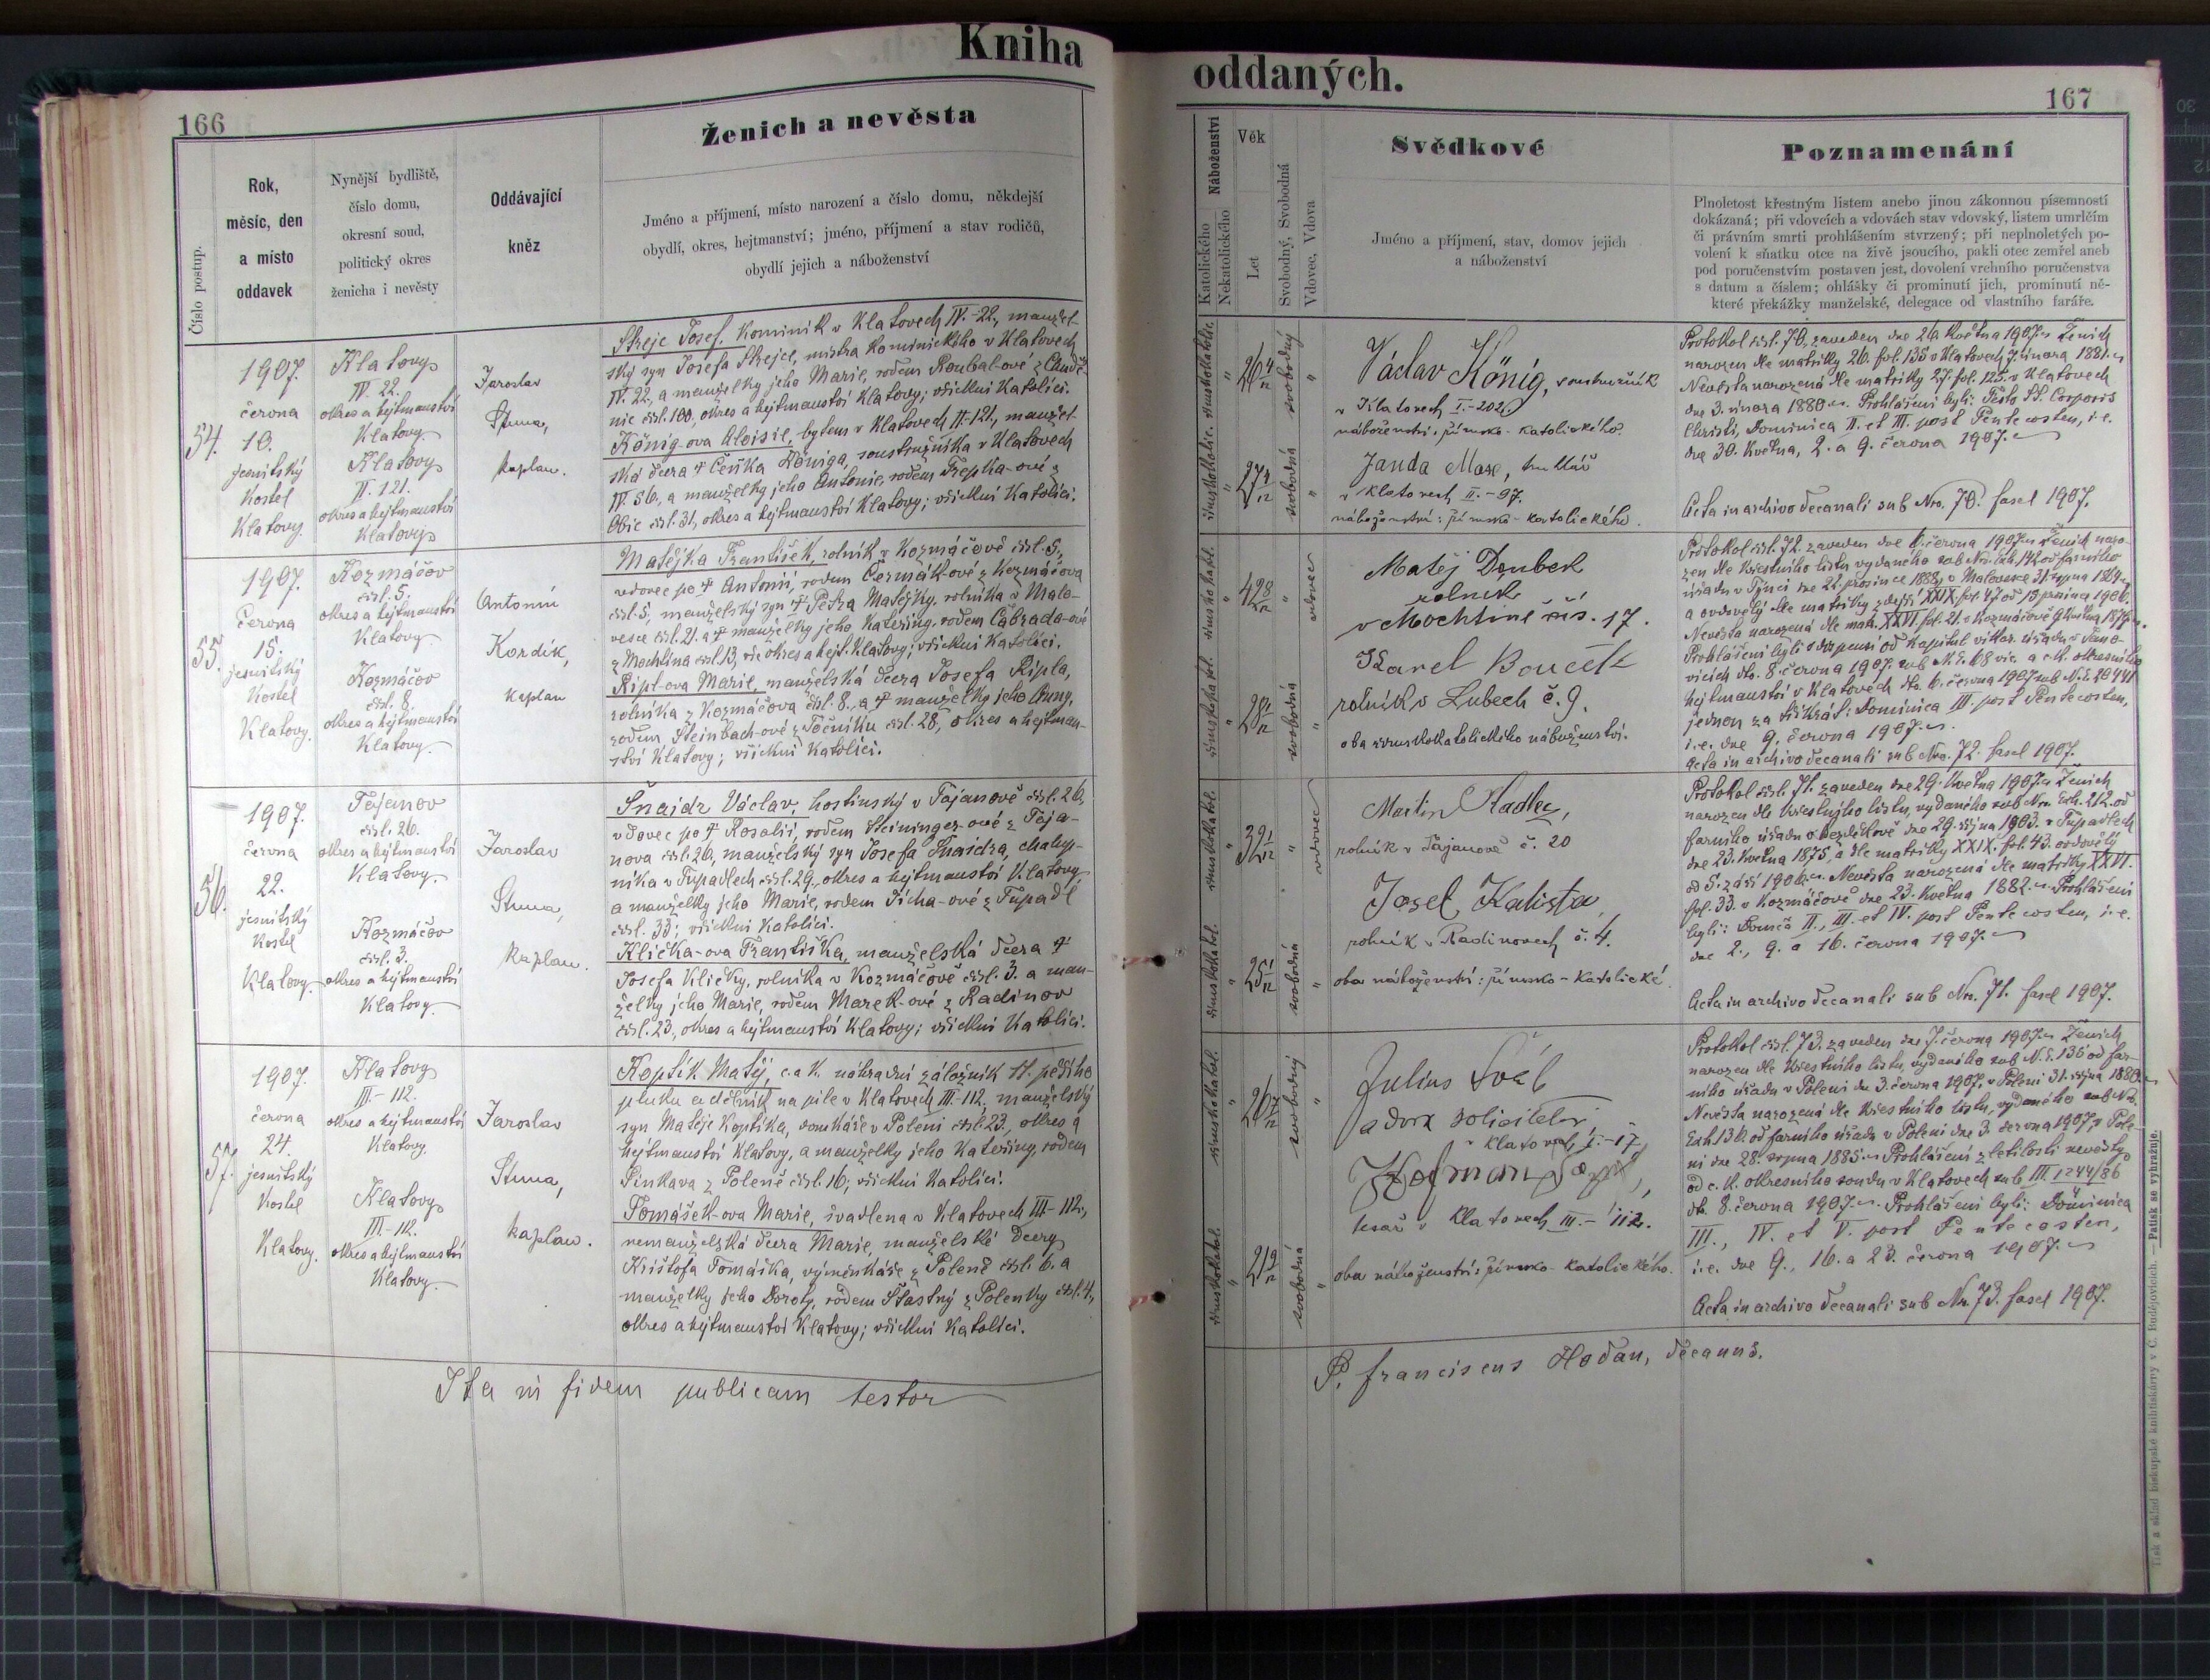 Kniha
166
Ženich a nevěsta
Číslo postup.
Rok,
měsíc, den
a místo
oddavek
Nynější bydliště,
číslo domu,
okresní soud,
politický okres
ženicha i nevěsty
Oddávající
kněz
Jméno a příjmení, místo narození a číslo domu, někdejší
obydlí, okres, hejtmanství; jméno, příjmení a stav rodičů,
obydlí jejich a náboženství
54.
1907.
června
10.
jesuitský
Kostel
Klatovy.
Klatovy
IV. 22.
okres a hejtmanství
Klatovy.
Klatovy
II. 121.
okres a hejtmanství
Klatovy
Jaroslav
kaplan.
Streje Josef, Kominík v Klatovech IV.-22., manžel-
ský syn Josefa Strejce, mistra Kominického v Klatovech
IV. 22., a manželky jeho Marie, rodem Roubal-ové z Chudě-
nic čsl. 100, okres a hejtmanství Klatovy; všickni Katolíci.
König-ova Aloisie, bytem v Klatovech II-121., manžel-
ská dcera † Čeňka Königa, soustružníka v Klatovech
IV. 56., a manželky jeho Antonie, rodem Trepka-ové z
čsl. 31, okres a hejtmanství Klatovy; všickni Katolíci.
55.
1907.
června
15.
jesuitský
Kostel
Klatovy.
Kozmáčov
čsl. 5.
okres a hejtmanství
Klatovy
Kozmáčov
čsl. 8.
okres a hejtmanství
Klatovy.
Antonín
Kordík,
kaplan
Matějka František, rolník v Kozmáčově čsl. 5.,
vdovec po † Antonii, rodem Čermák-ové z Kozmáčova
čsl. 5, manželský syn † Petra Matějky, rolníka v Malo-
vesce čsl. 21. a † manželky jeho Kateřiny, rodem Cabrada-ové
z Mochtína čsl. 13, vše okres a hejt. Klatovy; všickni Katolíci.
Ripl-ova Marie, manželská dcera Josefa Ripla,
rolníka z Kozmáčova čsl. 8., a † manželky jeho Anny,
rodem Steinbach-ové z Točníku čsl. 28, okres a hejtman-
ství Klatovy; všickni Katolíci.
56.
1907.
června
22.
jesuitský
Kostel
Klatovy.
Tajanov
čsl. 26.
okres a hejtmanství
Klatovy.
Kozmáčov
čsl. 3.
okres a hejtmanství
Klatovy.
Jaroslav
kaplan.
Šnajdr Václav, hostinský v Tajanově čsl. 26,
vdovec po † Rosalii, rodem Steininger-ové z Taja-
nova čsl. 26, manželský syn Josefa Šnajdra, chalup-
níka v Tupadlech čsl. 29., okres a hejtmanství Klatovy
a manželky jeho Marie, rodem Tícha-ové z Tupadl
čsl. 33; všickni Katolíci.
Klička-ova Františka, manželská dcera †
Josefa Kličky, rolníka v Kozmáčově čsl. 3. a man-
želky jeho Marie, rodem Marek-ové z Radinov
čsl. 23., okres a hejtmanství Klatovy; všickni Katolíci.
57.
1907.
června
24.
jesuitský
Kostel
Klatovy.
Klatovy
III-112.
okres a hejtmanství
Klatovy.
Klatovy
III-112.
okres a hejtmanství
Klatovy.
Jaroslav
kaplan.
Koptík Matěj, c. a k. náhradní záložník 11. pěšího
pluku a dělník na pile v Klatovech III-112, manželský
syn Matěje Koptíka, v Poleni čsl. 23., okres a
hejtmanství Klatovy, a manželky jeho Kateřiny, rodem
Sinkava z Poleně čsl. 16; všickni Katolíci.
Tomášek-ova Marie, švadlena v Klatovech III-112.,
nemanželská dcera Marie, manželské dcery
Krištofa Tomáška, výměnkáře z Poleně čsl. 6. a
manželky jeho Doroty, rodem Šťastný z Polenky čsl. 4.,
okres a hejtmanství Klatovy; všickni Katolíci.
Ita in fidem publicam testor
oddaných.
167
Náboženství
Katolického
Nekatolického
Věk
Let
Svobodný, Svobodná
Vdovec, Vdova
Svědkové
Jméno a příjmení, stav, domov jejich
a náboženství
Poznamenání
Plnoletost křestným listem anebo jinou zákonnou písemností
dokázaná; při vdovcích a vdovách stav vdovský, listem umrlčím
či právním smrti prohlášením stvrzený; při neplnoletých po-
volení k sňatku otce na živě jsoucího, pakli otec zemřel aneb
pod poručenstvím postaven jest, dovolení vrchního poručenstva
s datum a číslem; ohlášky či prominutí jich, prominutí ně-
které překážky manželské, delegace od vlastního faráře.
římskokatolic.
" 26 4/12 svobodný "
římskokatolic.
" 27 4/12 svobodná "
Václav König, soustružník
v Klatovech I.-202.
náboženství: římsko-katolického.
Janda Max, truhlář
v Klatovech II.-97.
náboženství: římsko-katolického.
Protokol čsl. 70. zaveden dne 26. Května 1907. Ženich
narozen dle matriky 26. fol. 135 v Klatovech 7. února 1881.
Nevěsta narozená dle matriky 27. fol. 125. v Klatovech
dne 3. února 1880. Prohlášeni byli: Festo SS. Corporis
Christi, Dominica II. et III. post Pentecosten, i.e.
dne 30. Května, 2. a 9. června 1907.
Acta in archivo decanali sub Nro. 70. fascl 1907.
římskokatol.
" 42 8/12 " vdovec
římskokatol.
" 28 /12 svobodná "
Matěj Doubek
rolník
v Mochtíně čís. 17.
Karel Bouček
rolník v Lubech č. 9.
oba římskokatolického náboženství.
Protokol čsl. 72. zaveden dne 6. června 1907. Ženich naro-
zen dle křestního listu vydaného sub Nro. Exh. 142 od farního
úřadu v Týnci dne 22. prosince 1888, v Malovesce 31. srpna 1864
a ovdovělý dle matriky zdejší XXIX. fol. 47 od 15. 1906.
Nevěsta narozená dle matr. XXVI. fol. 21. v Kozmáčově 9. Května 1879.
Prohlášeni byli s dispensí od Kapitul. vikar. úřadu v Jano-
vicích dto. 8. června 1907. sub N.E. 68 vic. a c.k. okresního
hejtmanství v Klatovech dto. 6. června 1907 sub N.E. 20441
jednou za třikrát: Dominica III. post Pentecosten,
i.e. dne 9. června 1907.
Acta in archivo decanali sub Nro. 72. fascl 1907.
římskokatol.
" 32 1/12 " vdovec
římskokatol.
" 25 1/12 svobodná "
Martin Hadlec,
rolník v Tajanově č. 20
Josef Kalista,
rolník v Radinovech č. 4.
oba náboženství: římsko-katolické.
Protokol čsl. 71. zaveden dne 29. Května 1907. Ženich
narozen dle křestního listu, vydaného sub Nro. Exh. 212. od
farního úřadu v Bezděkově dne 29. října 1903. v Tupadlech
dne 23. Května 1875, a dle matriky XXIX. fol. 43. ovdovělý
od 5. září 1906. Nevěsta narozená dle matriky XXVI.
fol. 33. v Kozmáčově dne 23. Května 1882. Prohlášeni
byli: Domca II., III. et IV. post Pentecosten, i.e.
dne 2., 9. a 16. června 1907.
Acta in archivo decanali sub Nro. 71. fascl 1907.
římskokatol.
" 26 7/12 svobodný "
římskokatol.
" 21 9/12 svobodná "
Julius Šváb
advok. solicitátor
v Klatovech, I.-17
Hofman
v Klatovech III.-112.
oba náboženství: římsko-katolického.
Protokol čsl. 73. zaveden dne 7. června 1907. Ženich
narozen dle křestního listu, vydaného sub N.E. 136 od far-
ního úřadu v Poleni dne 3. června 1907, v Poleni 31. října 1880.
Nevěsta narozená dle křestního listu, vydaného sub No.
Exh. 136. od farního úřadu v Poleni dne 3. června 1907, v Pole-
ni dne 28. srpna 1885. Prohlášení zletilosti nevěsty
od c. k. okresního soudu v Klatovech sub III 1244/86
dto. 8. června 1907. Prohlášeni byli: Dominica
III., IV. et V. post Pentecosten,
i.e. dne 9., 16. a 23. června 1907.
Acta in archivo decanali sub Nr. 73. fascl 1907.
P. Franciscus Hodan, decanus.
Tisk a sklad biskupské knihtiskárny v Č. Budějovicích. — Patisk se vyhražuje.